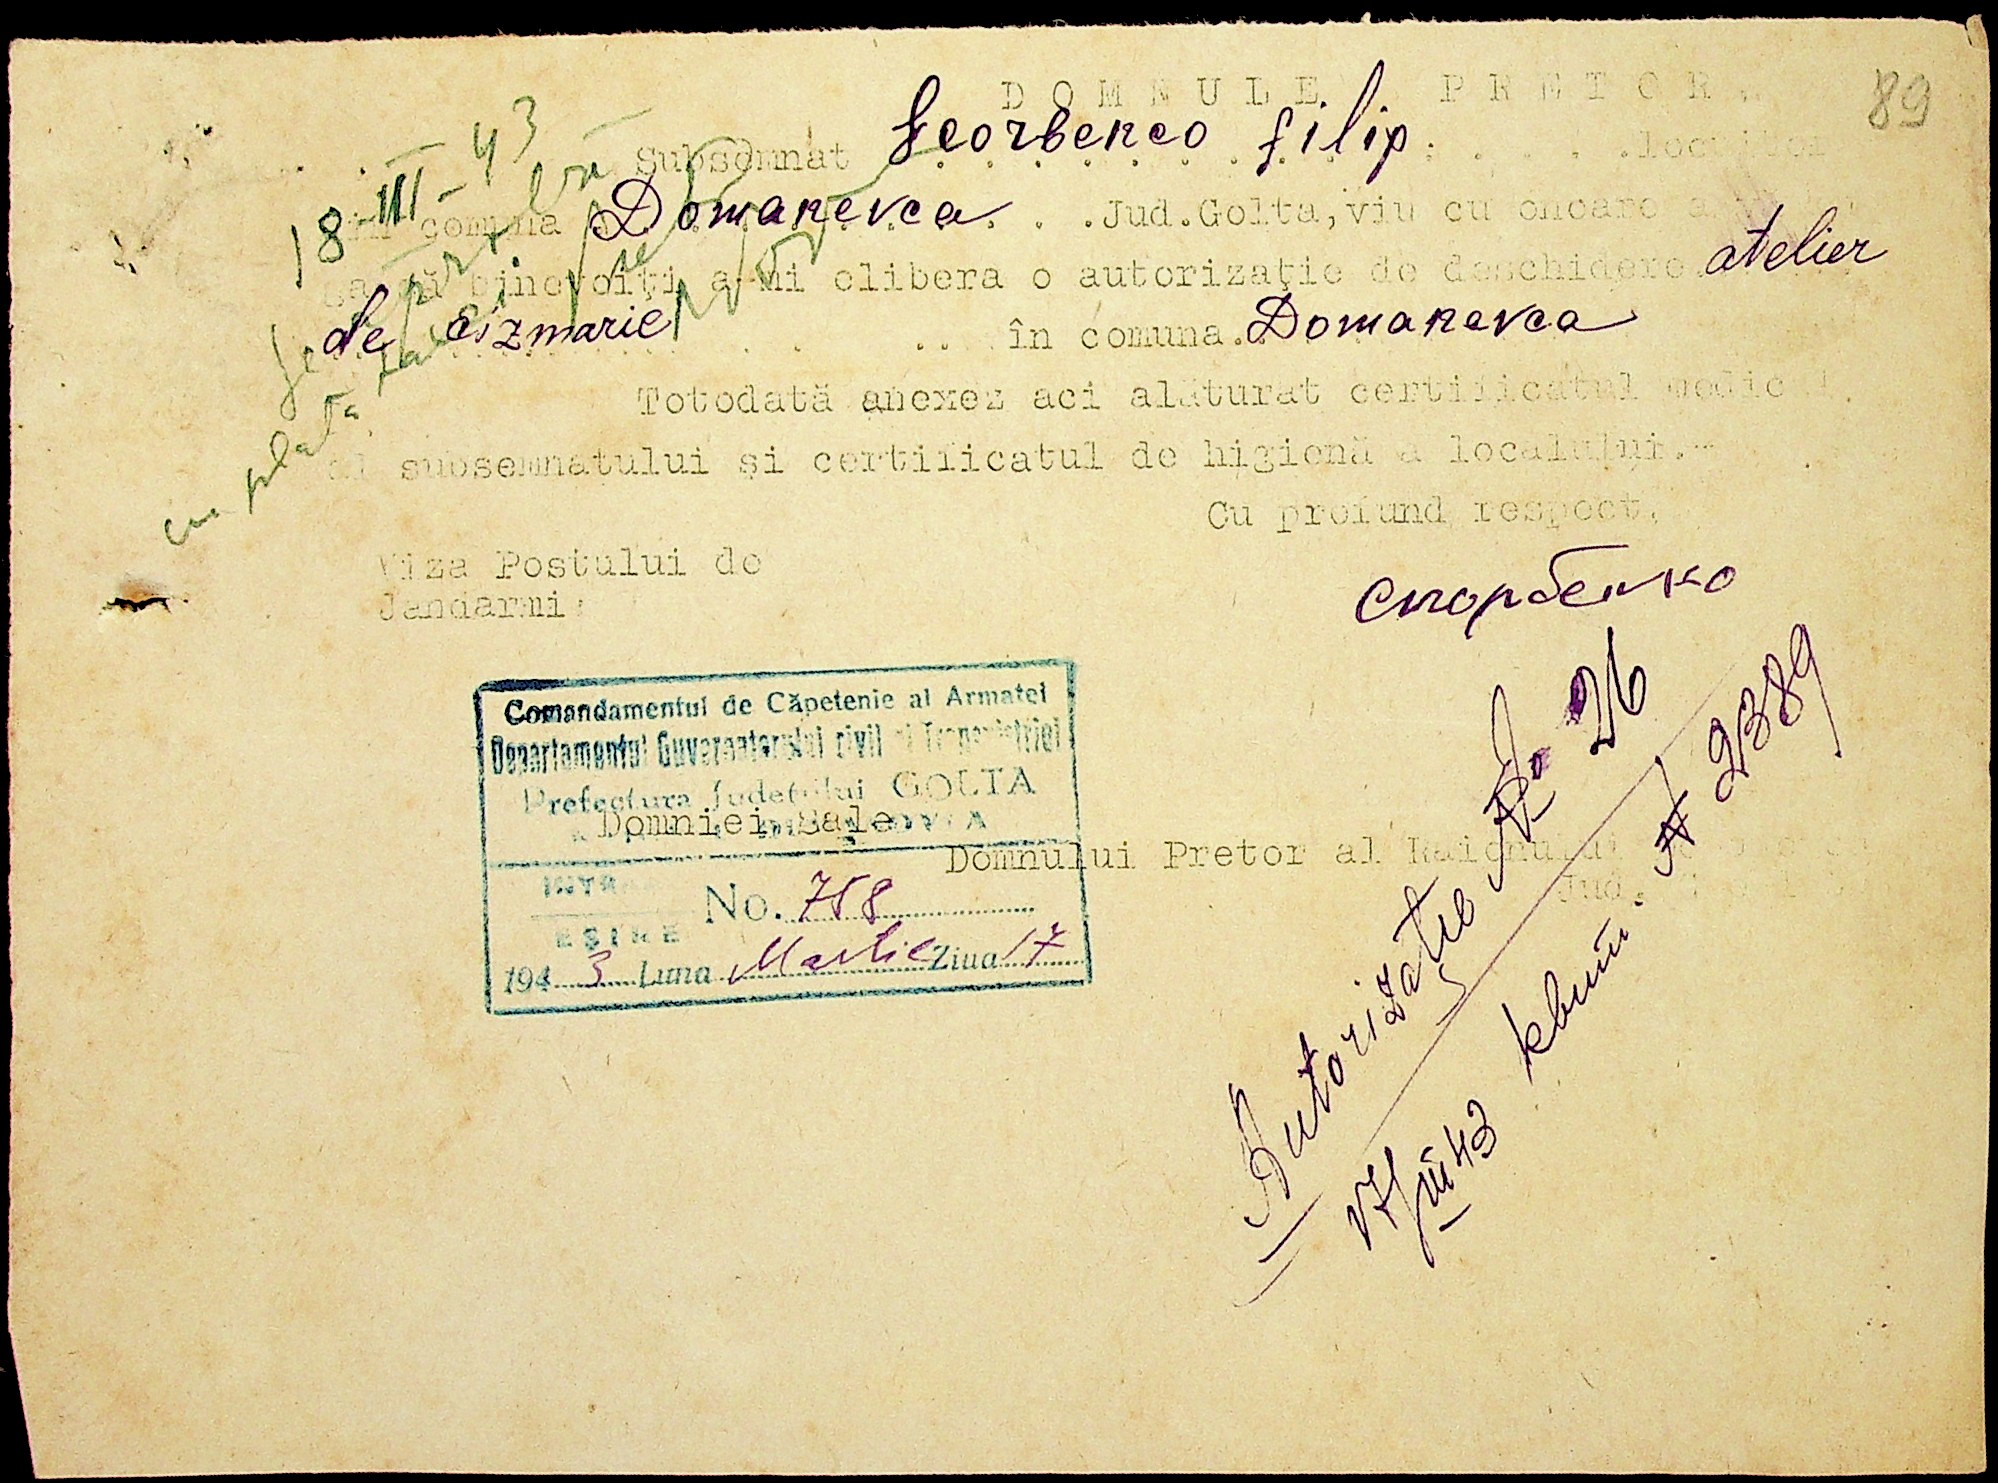 89
DOMNULE PRETOR
Subsemnat Scorbenco Filip locuitor
din comuna Domanevca Jud.Golta, viu cu onoare a
ca să binevoiţi a-mi elibera o autorizaţie de deschidere atelier
de cizmarie în comuna Domanevca
Totodată anexez aci alăturat certificatul medical
al subsemnatului şi certificatul de higienă a localului.-
Cu profund respect,
Viza Postului de
Jandarmi
Скорбенко
18-III-43
cu plata
Comandamentul de Căpetenie al Armatei
Departamentul Guvernatorului civil al Transnistriei
Prefectura Judeţului GOLTA
INTRARE
IEŞIRE
No. 758
1943 Luna Martie Ziua 17
Domniei Sale
Domnului Pretor al Raionului
Jud.
Autorizatie No 26
17/III 43 квит. № 2389